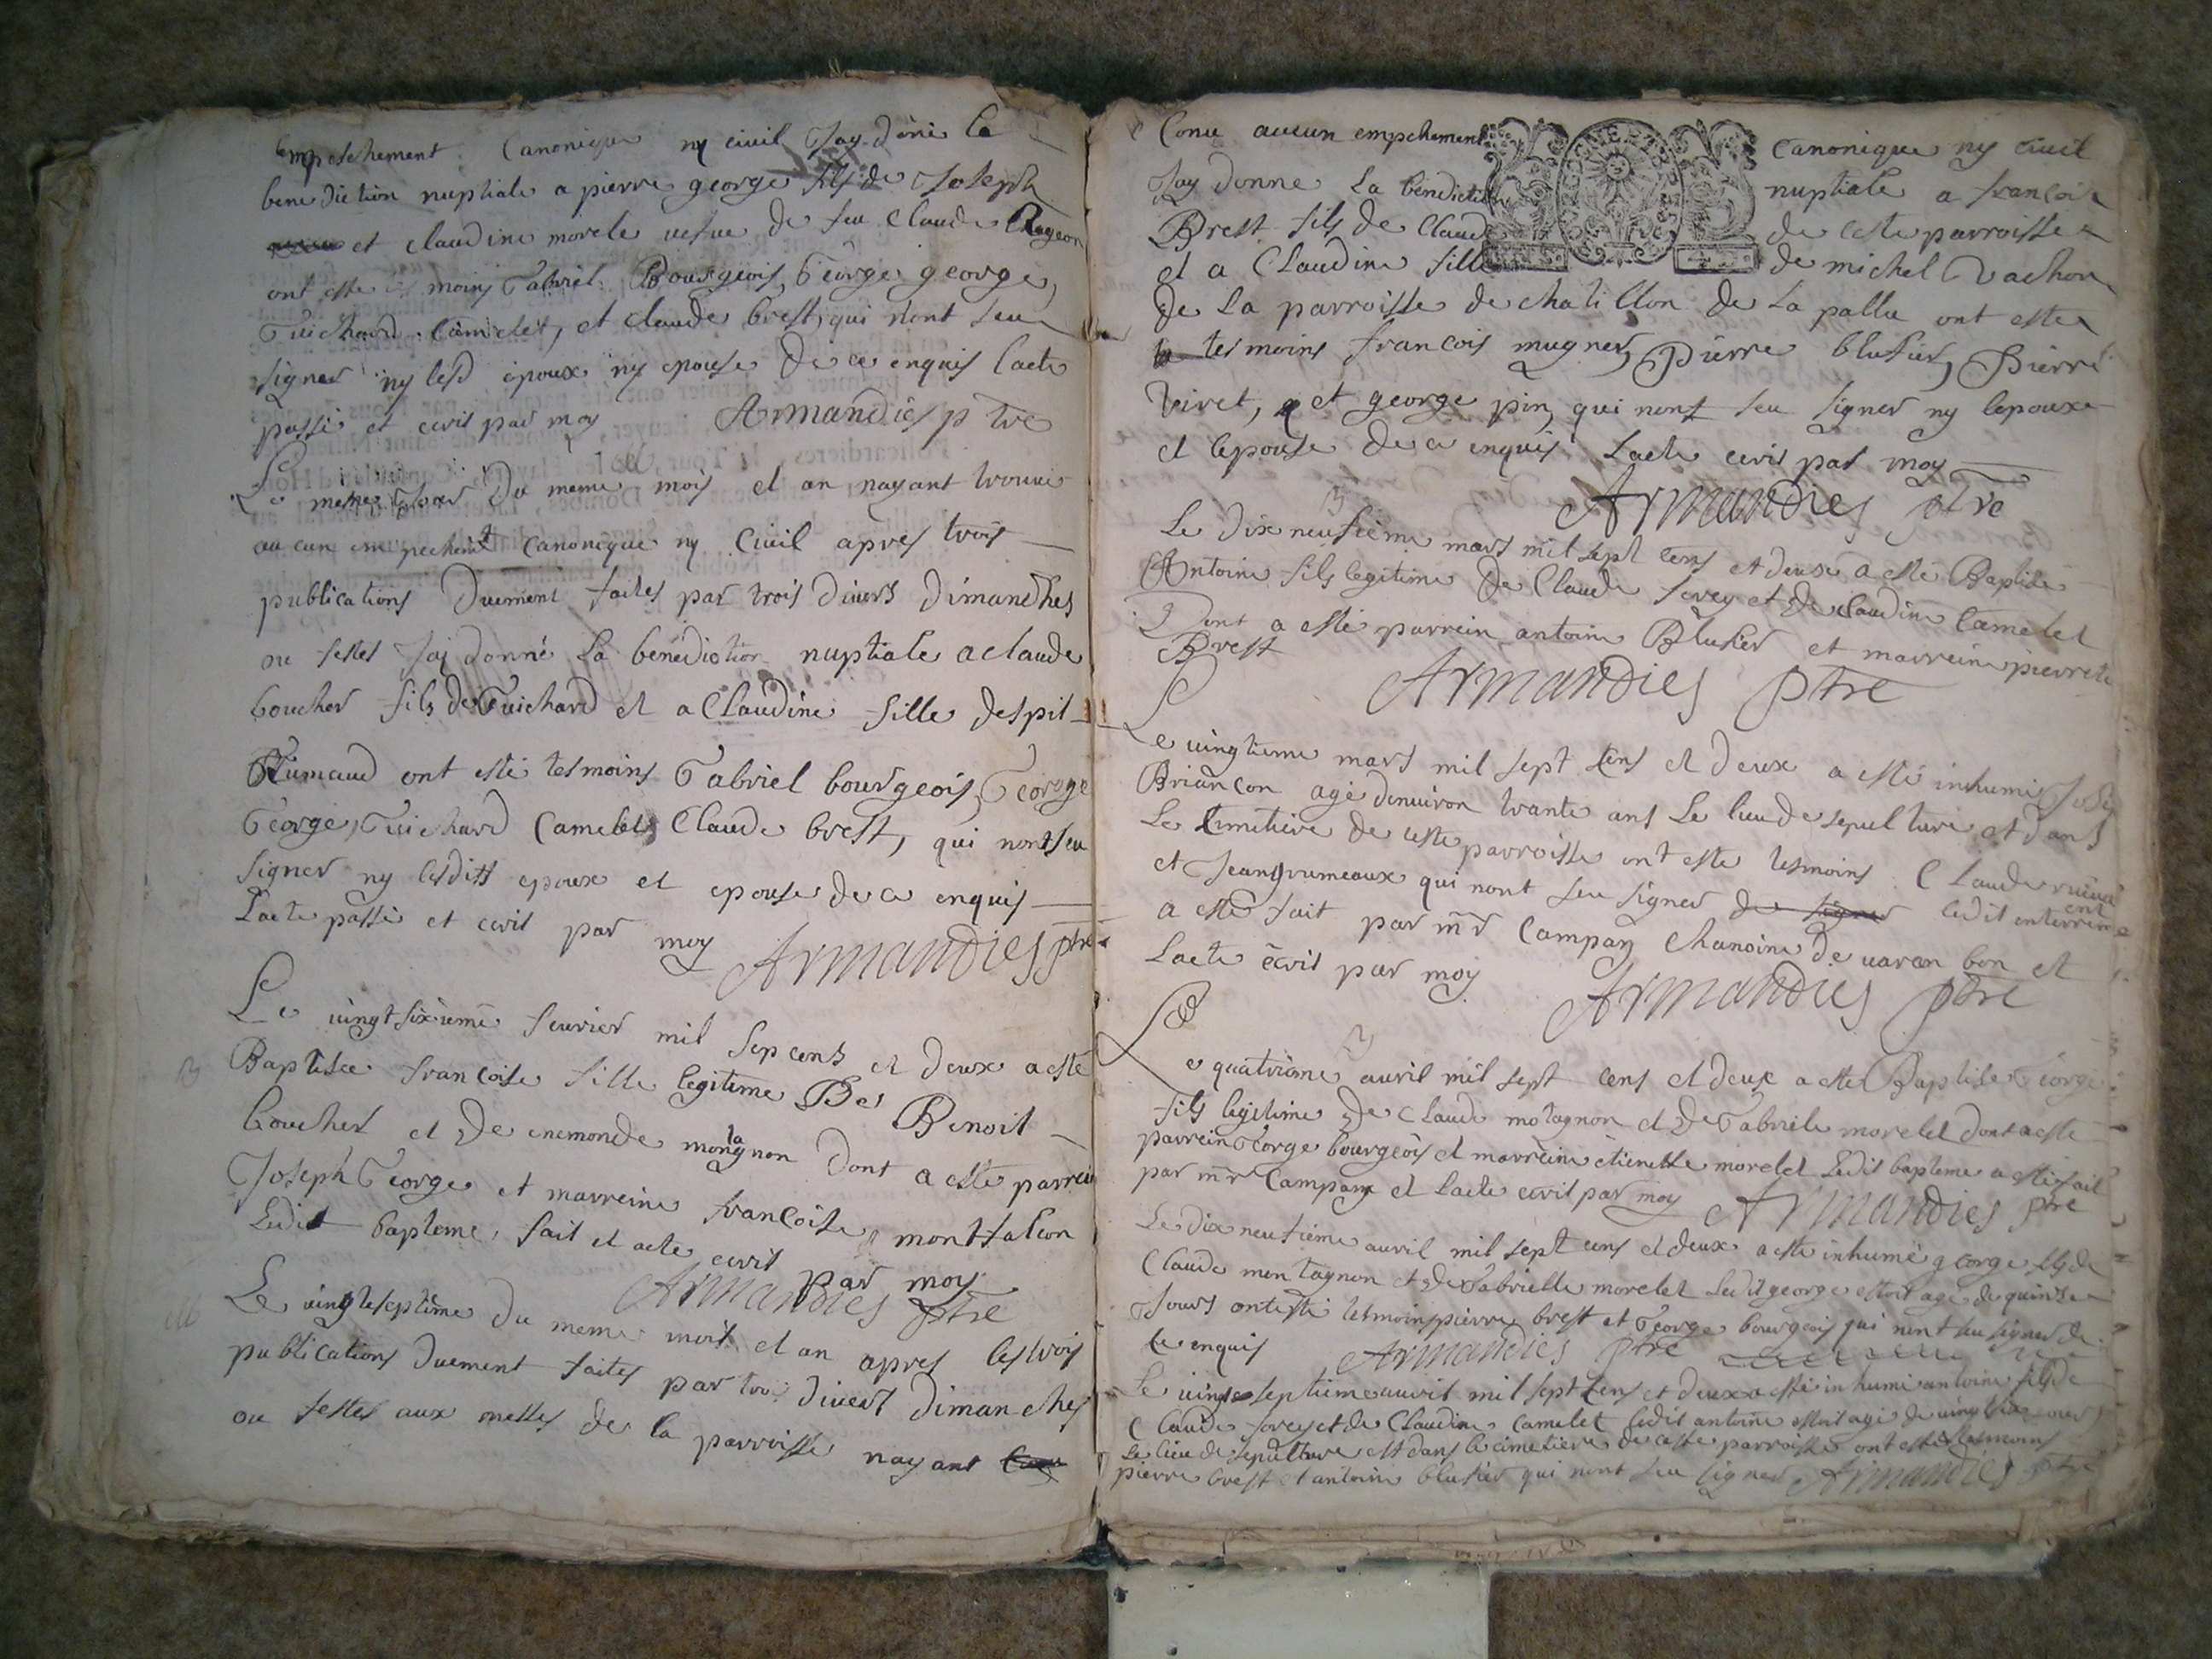 empeschement Canonique ny civil Jay doné la
benediction nuptiale a pierre george fils de Joseph
et claudine morele vefve de feu Claude
ont esté moins Gabriel Bourgeois, George george,
Guichard Camelet, et claude brest, qui nont seu
signer ny lesd epoux ny epouse de ce enquis lacte
passé et ecrit par moy Armandies ptre
Le meme jour du meme mois et an nayant trouvé
aucun empechemt Canonique ny Civil apres trois
publications Duement faites par trois divers dimanches
ou festes Jai donné La benediction nuptiale a claude
boucher fils de Guichard et a Claudine fille despit
ont esté tesmoins Gabriel bourgeois, George
George, Guichard Camelet, Claude brest, qui nont seu
signer ny lesdits epoux et epouse de ce enquis
Lacte passé et ecrit par moy Armandies ptre
Le vingt sixieme fevrier mil sep cens et deux a esté
B
Baptisée francoise fille legitime De Benoit
boucher et De enemonde montagnon dont a esté parrein
Joseph George et marreine francoise montfalcon
Ledit bapteme fait et acte ecrit par moy
Armandies ptre
Le vingtseptieme du meme mois et an apres les trois
publications duement faites par trois divers dimanches
ou festes aux messes de la parroisse nayant
Conu aucun empchement canonique ny civil
Jay donne La benediction nuptiale a francois
Brest fils de Claude de ceste parroisse
et a Claudine fille de michel Vachon
de La parroisse de chatillon de la pallu ont esté
tesmoins francois mugner, Pierre blusier, Pierre
Viret, et george pin, qui nont seu signer ny lepoux
et lepouse de ce enquis Lacte ecrit par moy
Armandies ptre
B
Le dix neufieme mars mil sept cens et deux a esté Baptisé
Antoine fils legitime De Claude forey et de claudine Camelet
Dont a esté parrein antoine Blusier et marreine pierrete
Brest
Armandies ptre
Le vingtieme mars mil sept cens et deux a esté inhumé
Briancon agé denviron trante ans Le lieu de sepulture est dans
Le Cimetiere de ceste parroisse ont esté tesmoins Claude
et Jean grumeaux qui nont seu signer de signer Ledit enterrement
a esté fait par mr Campan Chanoine de varanbon et
Lacte écrit par moy Armandies ptre
B
Le quatrième avril mil sept cens et deux a esté Baptisé George
fils legitime De Claude motagnon et De Gabriele morelet dont a esté
parrein George bourgeois et marreine étienette morelet Ledit bapteme a esté fait
par mr Campan et Lacte ecrit par moy Armandies ptre
Le dix neufieme avril mil sept cens et deux a esté inhumé george fils de
Claude montagnon et de Gabrielle morelet Ledit george estoit agé de quinze
Jours ont esté tesmoins pierre brest et George bourgeois qui nont seu signer de
ce enquis Armandies ptre
Le vingt septieme avril mil sept cens et deux a esté inhumé antoine fils de
Claude forey et de Claudine Camelet Ledit antoine estoit agé de
Le lieu de sepulture est dans le cimetiere de ceste parroisse ont esté tesmoins
pierre brest et antoine blusier qui nont seu signer Armandies ptre